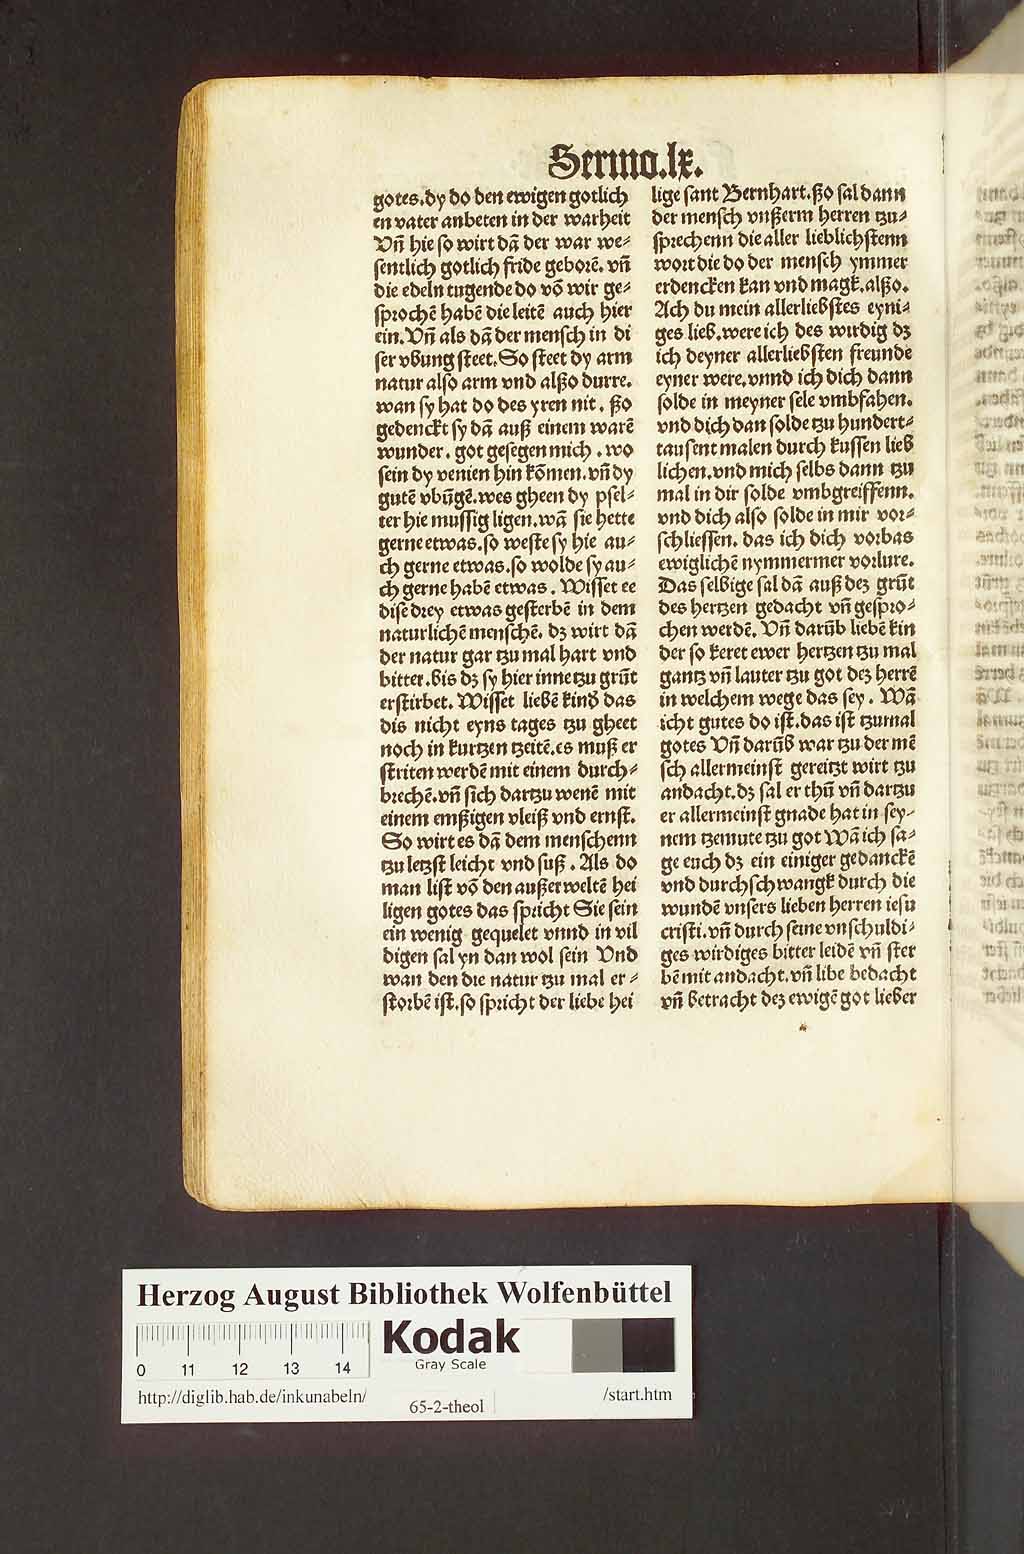 Sermo.lx.
gotes.dy do den ewigen gotlich
en vater anbeten in der warheit
Vn̄ hie so wirt dā der war we⸗
sentlich gotlich fride geborē. vn̄
die edeln tugende do vō wir ge⸗
sprochē habē die leitē auch hier
ein. Vn̄ als dā der mensch in di
ser vbung steet. So steet dy arm
natur also arm vnd alßo durre.
wan sy hat do des yren nit. ßo
gedenckt sy dā auß einem warē
wunder. got gesegen mich. wo
sein dy venien hin kōmen. vn̄ dy
gutē vbūgē. wes gheen dy psel⸗
ter hie mussig ligen. wā sie hette
gerne etwas. so weste sy hie au⸗
ch gerne etwas. so wolde sy au⸗
ch gerne habē etwas. Wisset ee
dise drey etwas gesterbē in dem
naturlichē menschē. dz wirt dā
der natur gar tzu mal hart vnd
bitter. bis dz sy hier inne tzu grūt
erstirbet. Wisset liebē kind das
dis nicht eyns tages tzu gheet
noch in kurtzen tzeitē. es muß er
striten werdē mit einem durch⸗
brechē. vn̄ sich dartzu wenē mit
einem emßigen vleiß vnd ernst.
So wirt es dā dem menschenn
tzu letzst leicht vnd suß. Als do
man list vō den außerweltē hei
ligen gotes das spricht Sie sein
ein wenig gequelet vnnd in vil
digen sal yn dan wol sein Vnd
wan den die natur tzu mal er⸗
storbē ist. so spricht der liebe hei
lige sant Bernhart. ßo sal dann
der mensch vnßerm herren tzu⸗
sprechenn die aller lieblichstenn
wort die do der mensch ymmer
erdencken kan vnd magk. alßo.
Ach du mein allerliebstes eyni⸗
ges lieb. were ich des wirdig dz
ich deyner allerliebsten freunde
eyner were. vnnd ich dich dann
solde in meyner sele vmbfahen.
vnd dich dan solde tzu hundert⸗
tausent malen durch kussen lieb
lichen. vnd mich selbs dann tzu
mal in dir solde vmbgreiffenn.
vnd dich also solde in mir vor⸗
schliessen. das ich dich vorbas
ewiglichē nymmermer vorlure.
Das selbige sal dā auß dez grūt
des hertzen gedacht vn̄ gespro⸗
chen werdē. Vn̄ darūb liebē kin
der so keret ewer hertzen tzu mal
gantz vn̄ lauter tzu got dez herrē
in welchem wege das sey. Wā
icht gutes do ist. das ist tzumal
gotes Vn̄ darūb war tzu der mē
sch allermeinst gereitzt wirt tzu
andacht. dz sal er thū vn̄ dartzu
er allermeinst gnade hat in sey⸗
nem tzemute tzu got Wā ich sa⸗
ge euch dz ein einiger gedanckē
vnd durchschwangk durch die
wundē vnsers lieben herren iesu
cristi. vn̄ durch seine vnschuldi⸗
ges wirdiges bitter leidē vn̄ ster
bē mit andacht. vn̄ libe bedacht
vn̄ betracht dez ewigē got lieber
Herzog August Bibliothek Wolfenbüttel
Kodak
Gray Scale
0 11 12 13 14
http://diglib.hab.de/inkunabeln/
65-2-theol
/start.htm